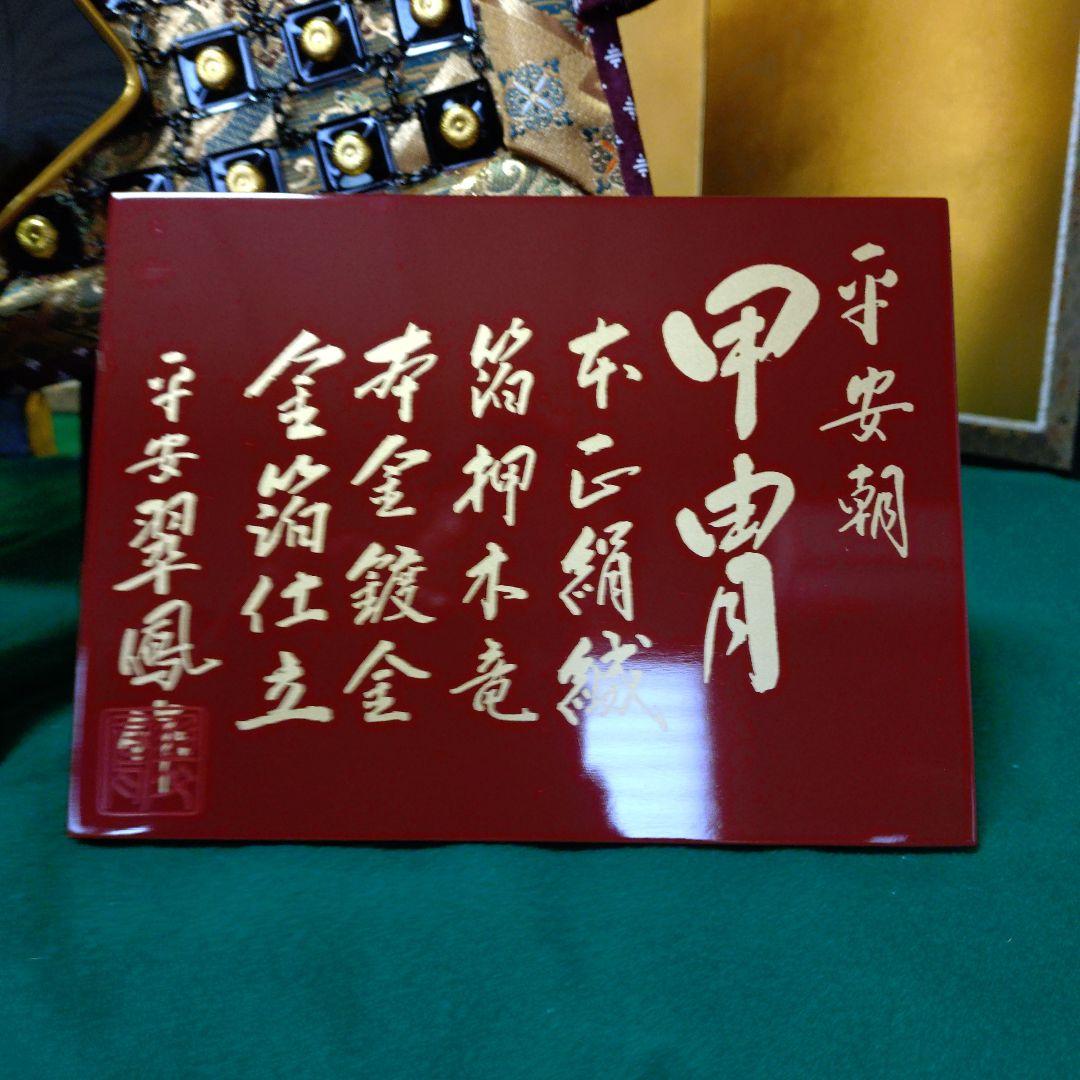 平安朝
甲冑
本正絹縅
箔押木竜
本金鍍金
金箔仕立
平安翠鳳